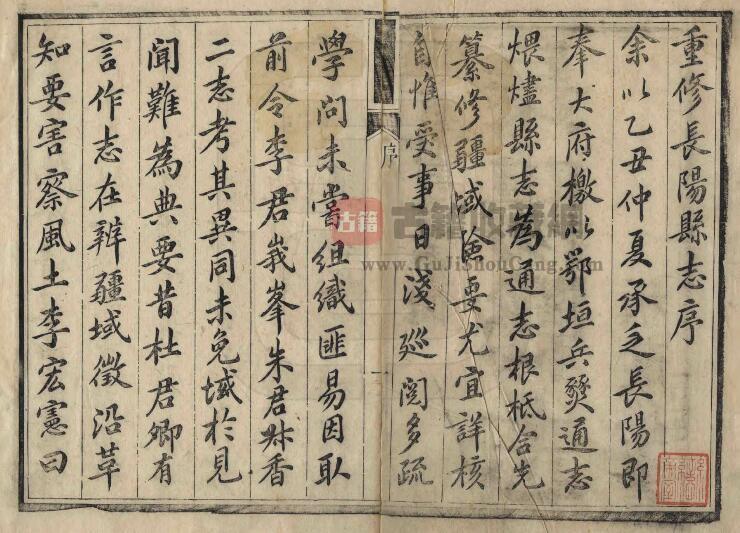 重修長陽縣志序
余以乙丑仲夏承乏長陽即
奉大府檄以鄂垣兵燹通志
煨燼縣志為通志根柢合先
纂修疆域險要尤宜詳核
自惟受事日淺廵閲多疏
序
學問未嘗組織匪易因取
前令李君峩峯朱君黻香
二志考其異同未免域於見
聞難為典要昔杜君卿有
言作志在辨疆域徵沿革
知要害察風土李宏憲曰
古籍
古籍收藏網
www.GuJiShouCang.com